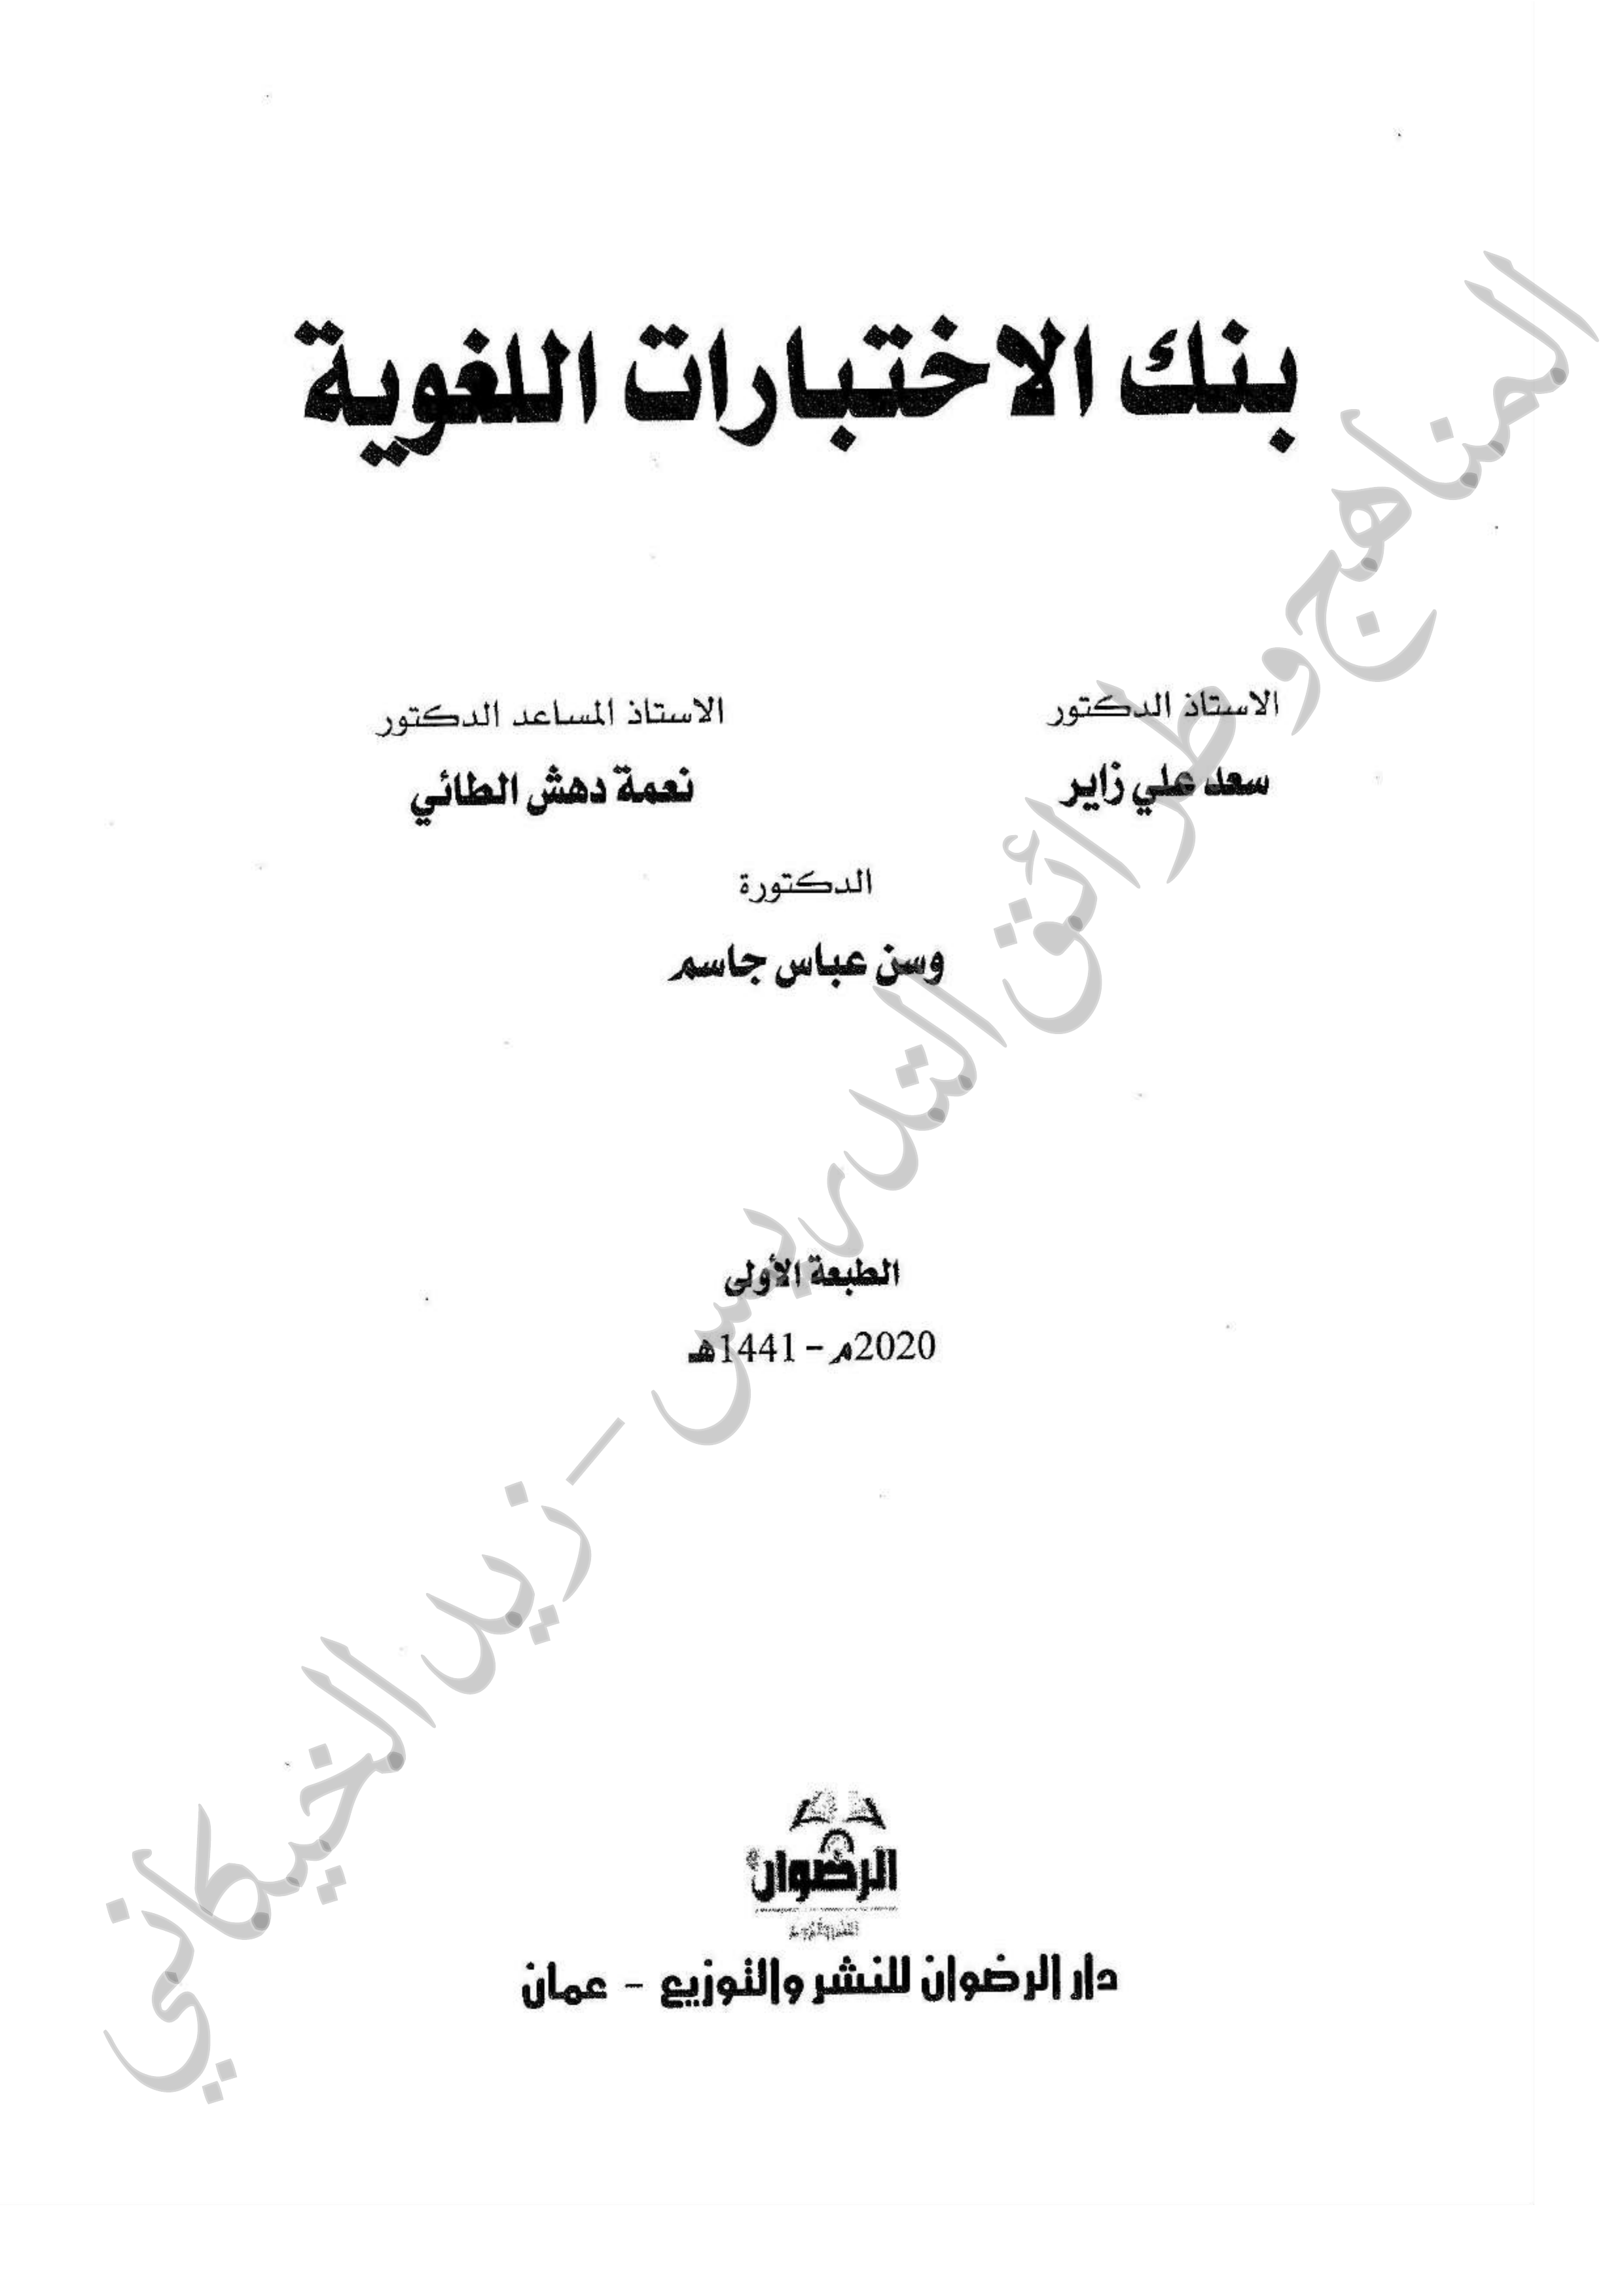 بنك الاختبارات اللغوية
الاستاذ الدكتور
سعد علي زاير
الاستاذ المساعد الدكتور
نعمة دهش الطائي
الدكتورة
وسن عباس جاسم
الطبعة الأولى
2020م - 1441هـ
الرضوان
دار الرضوان للنشر والتوزيع - عمان
المناهج وطرائق التدريس - زيد الخيكاني